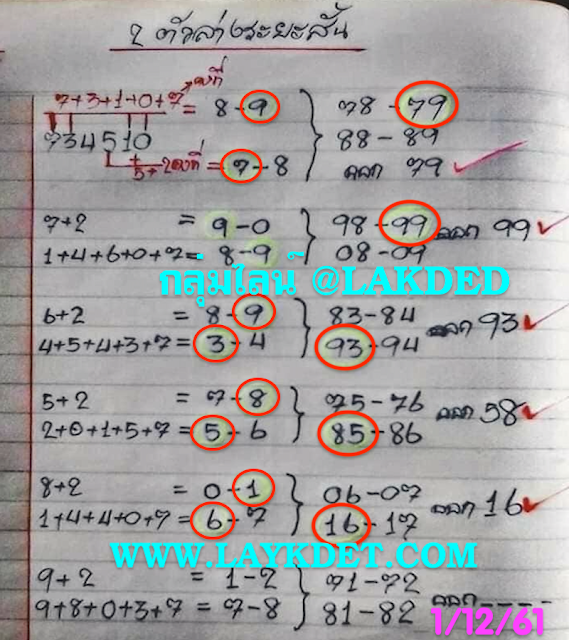 2 ตัวล่างระยะสั้น
คงที่
7+3+1+0+7 = 8-9 } 78-79
734510 88-89
5+2คงที่ = 7-8 ออก 79
7+2 = 9-0 } 98-99 ออก 99
1+4+6+0+7 = 8-9 08-09
กลุ่มไลน์ @LAKDED
6+2 = 8-9 } 83-84 ออก 93
4+5+4+3+7 = 3-4 93-94
5+2 = 7-8 } 75-76 ออก 58
2+0+1+5+7 = 5-6 85-86
8+2 = 0-1 } 06-07 ออก 16
1+4+4+0+7 = 6-7 16-17
WWW.LAYKDET.COM
9+2 = 1-2 } 71-72 ออก ----
9+8+0+3+7 = 7-8 81-82
1/12/61